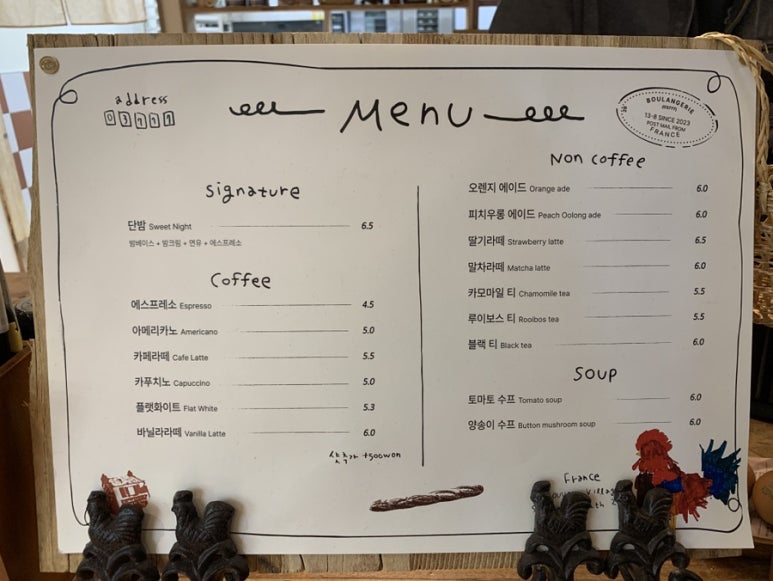 address
Menu
BOULANGERIE
13-8 SINCE 2023
POST MAIL FROM
FRANCE
Signature
단밤 Sweet Night 6.5
밤베이스 + 밤크림 + 연유 + 에스프레소
Coffee
에스프레소 Espresso 4.5
아메리카노 Americano 5.0
카페라떼 Cafe Latte 5.5
카푸치노 Capuccino 5.0
플랫화이트 Flat White 5.3
바닐라라떼 Vanilla Latte 6.0
샷추가 +500won
Non coffee
오렌지 에이드 Orange ade 6.0
피치우롱 에이드 Peach Oolong ade 6.0
딸기라떼 Strawberry latte 6.5
말차라떼 Matcha latte 6.0
카모마일 티 Chamomile tea 5.5
루이보스 티 Rooibos tea 5.5
블랙 티 Black tea 6.0
Soup
토마토 수프 Tomato soup 6.0
양송이 수프 Button mushroom soup 6.0
France